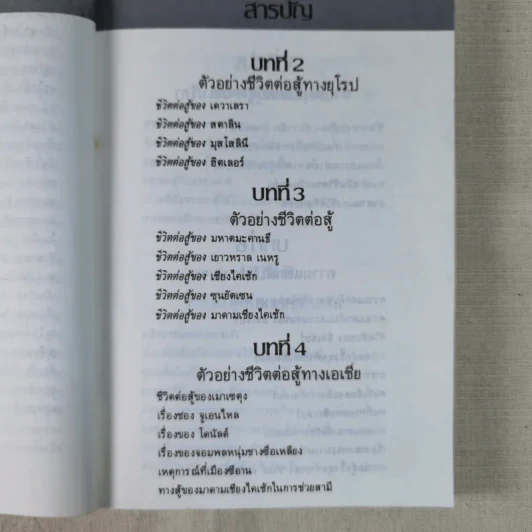 สารบัญ
บทที่ 2
ตัวอย่างชีวิตต่อสู้ทางยุโรป
ชีวิตต่อสู้ของ เดวาเลรา
ชีวิตต่อสู้ของ สตาลิน
ชีวิตต่อสู้ของ มุสโสลินี
ชีวิตต่อสู้ของ ฮิตเลอร์
บทที่ 3
ตัวอย่างชีวิตต่อสู้
ชีวิตต่อสู้ของ มหาตมะคานธี
ชีวิตต่อสู้ของ เยาวหราล เนหรู
ชีวิตต่อสู้ของ เชียงไคเช็ก
ชีวิตต่อสู้ของ ซุนยัดเซน
ชีวิตต่อสู้ของ มาดามเชียงไคเช็ก
บทที่ 4
ตัวอย่างชีวิตต่อสู้ทางเอเชีย
ชีวิตต่อสู้ของเมาเซตุง
เรื่องของ จูเอนไหล
เรื่องของ โดนัลด์
เรื่องของจอมพลหนุ่มชางซื่อเหลียง
เหตุการณ์ที่เมืองซีอาน
ทางสู้ของมาดามเชียงไคเช็กในการช่วยสามี